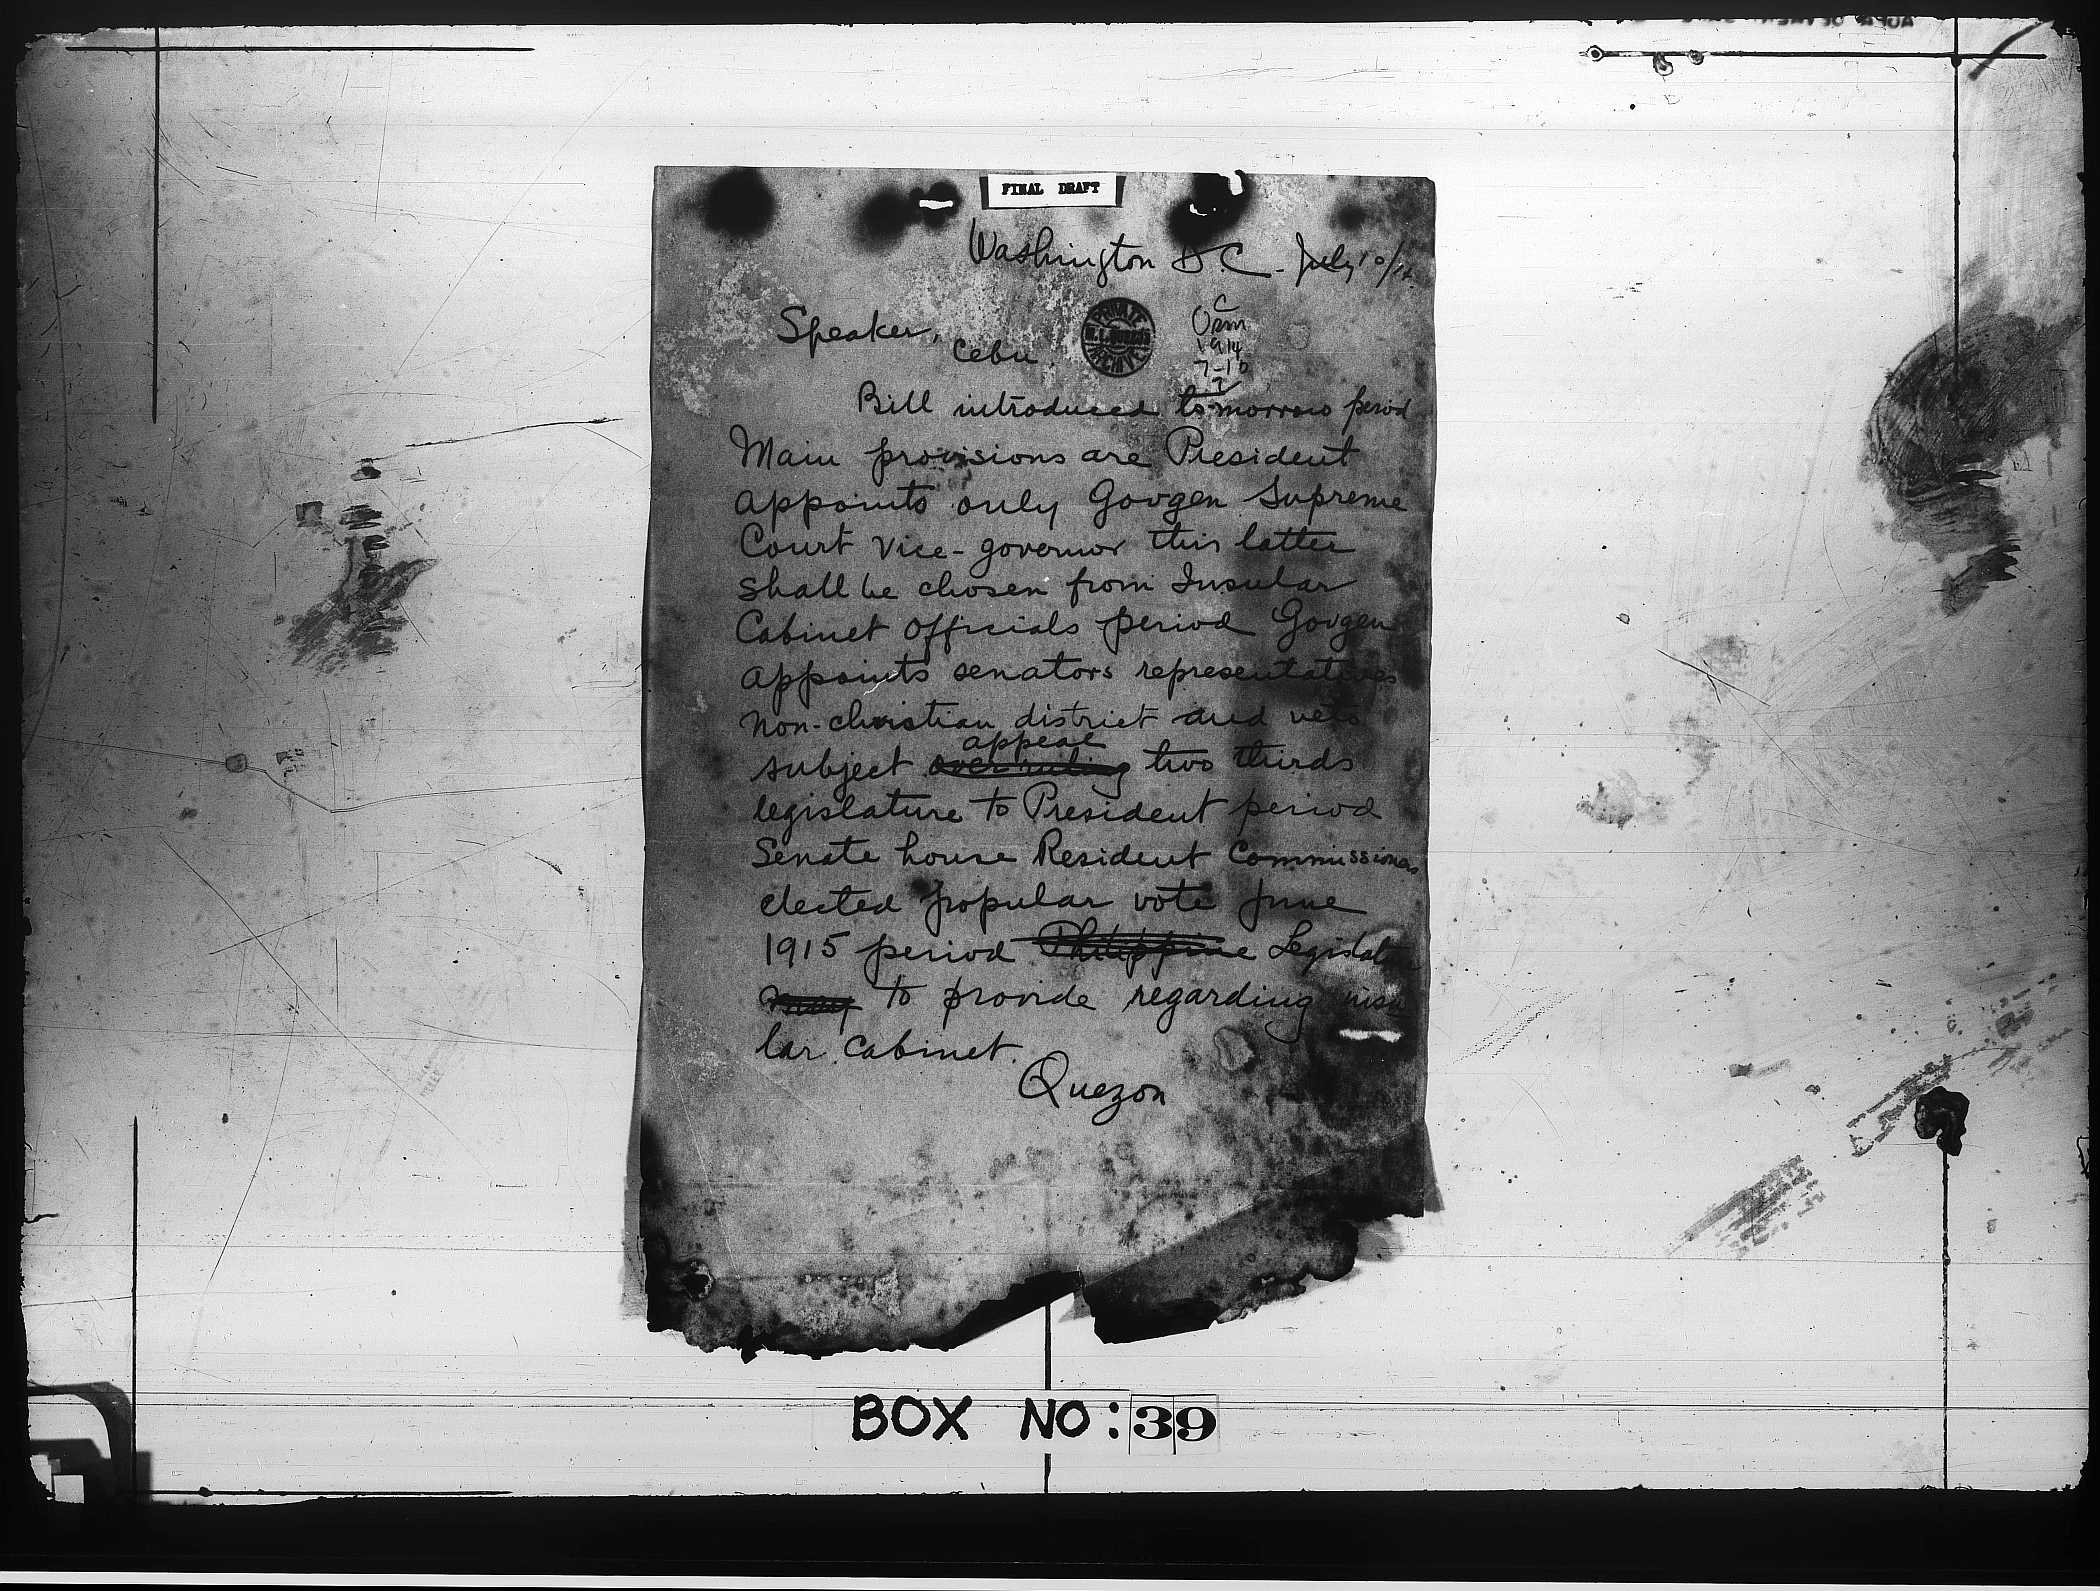 FINAL DRAFT
Washington D.C. July 10/14
Speaker,
Cebu.
PRIVATE
ARCHIVE
C
1914
7-10
7
Bill introduced to-morrow period
Main provisions are President
appoints only Govgen Supreme
Court Vice-governor this latter
shall be chosen from Insular
Cabinet officials period Govgen
appoints senators representatives
non-christian district and veto
appeal
subject overruling two thirds
legislature to President period
Senate house Resident Commissioners
elected popular vote June
1915 period Philippine Legislature
may to provide regarding insu
lar cabinet.
Quezon
BOX NO: 39